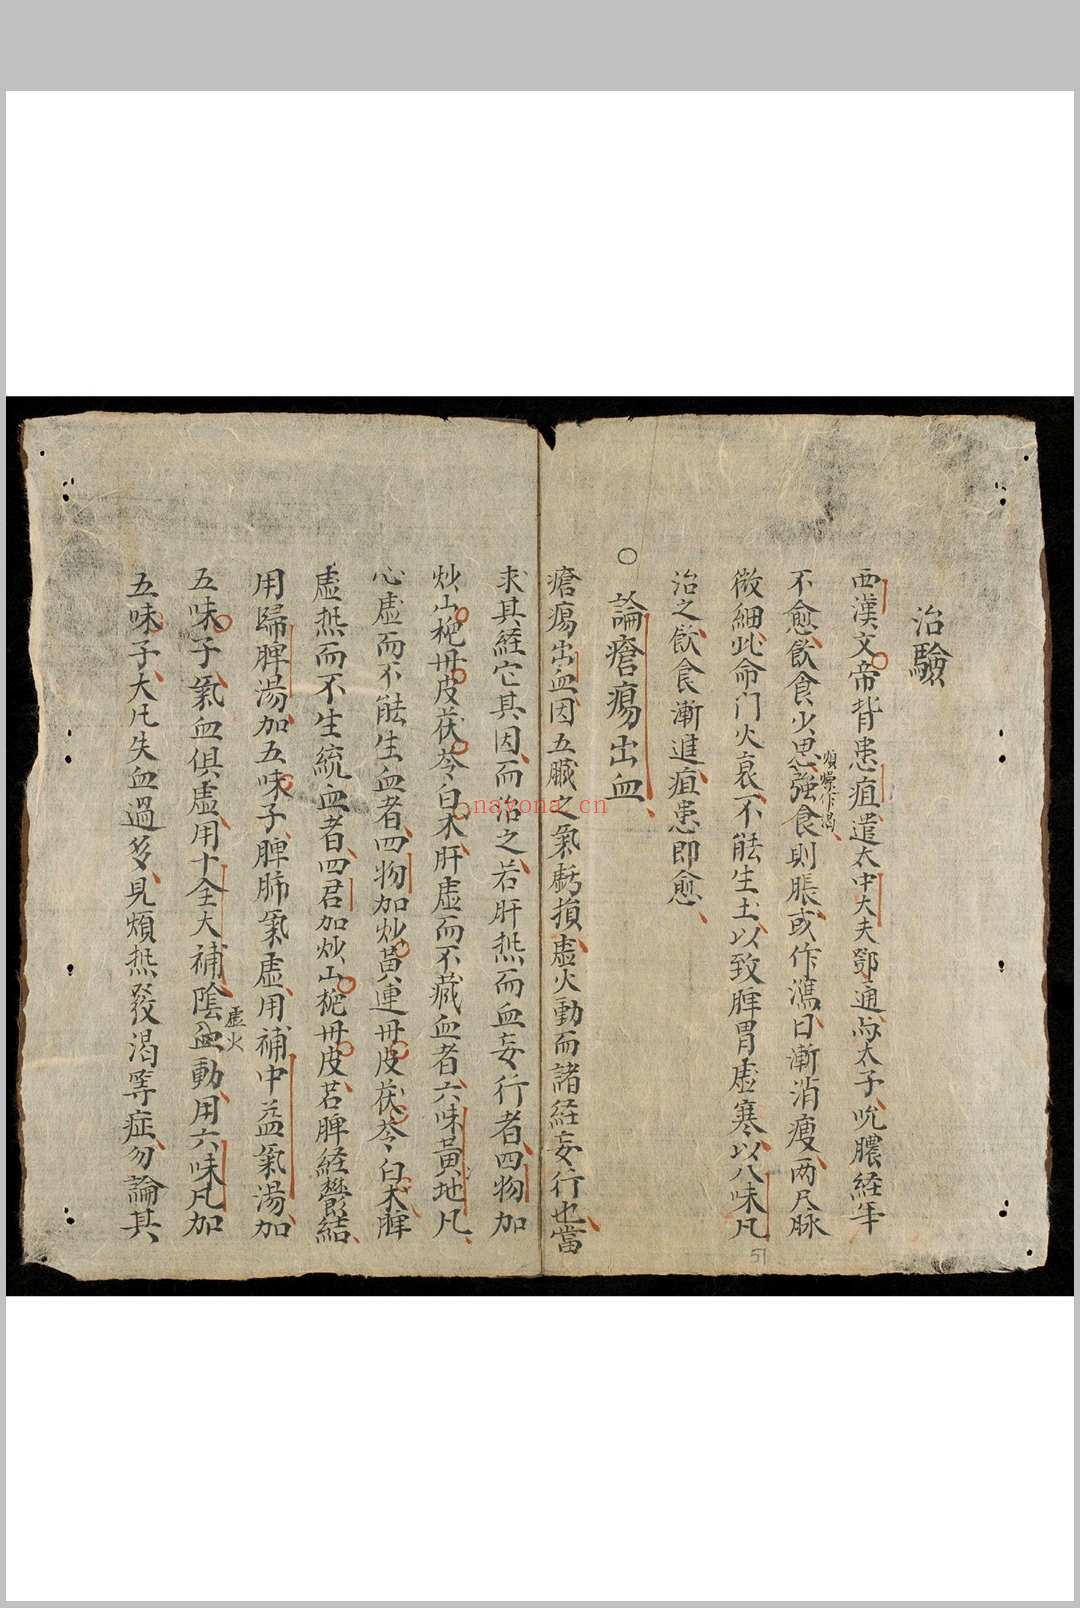 治驗
西漢文帝背患疽遣太中大夫鄧通与太子吮膿経年
不愈飲食少思強食則脹或作瀉日漸消瘦两尺脉
微細此命门火衰不能生土以致脾胃虛寒以八味凡
治之飲食漸進疽患即愈
51
○論瘡瘍出血
瘡瘍出血因五臟之氣虧損虛火動而諸経妄行也當
求其経它其因而治之若肝热而血妄行者四物加
炒山栀丹皮茯苓白术肝虛而不藏血者六味黃地凡
心虛而不能生血者四物加炒黃連丹皮茯苓白术脾
虛热而不生統血者四君加炒山栀丹皮若脾経鬱結
用歸脾湯加五味子脾肺氣虛用補中益氣湯加
五味子氣血俱虛用十全大補陰血動用六味凡加
虛火
五味子大凡失血過多見煩热發渴等症勿論其
nayona.cn